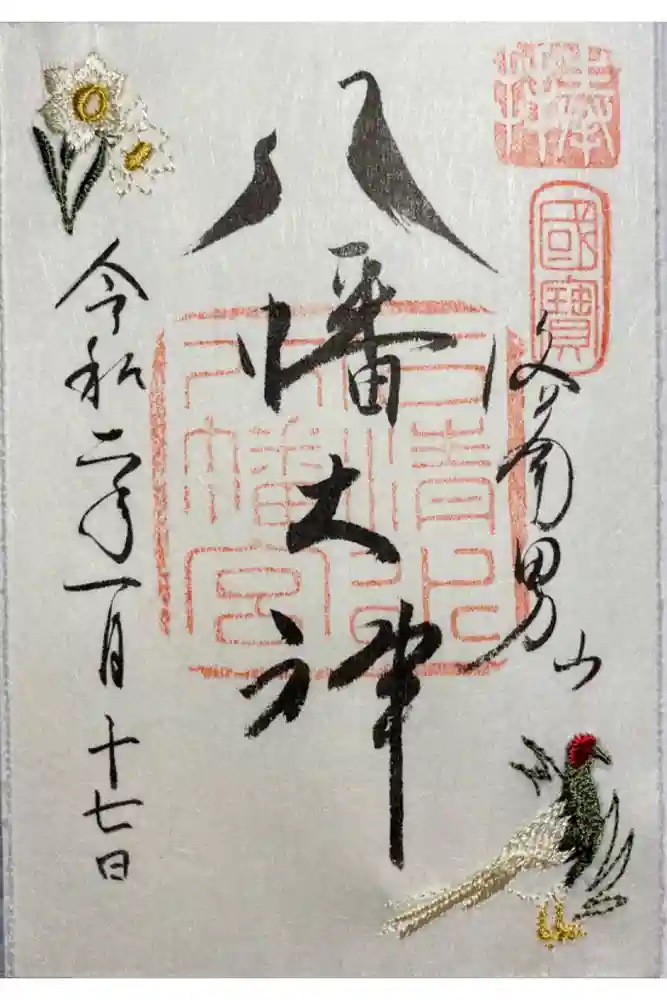 奉拝
國寶
男山
八幡大神
石清水
八幡宮
令和二年一月十七日